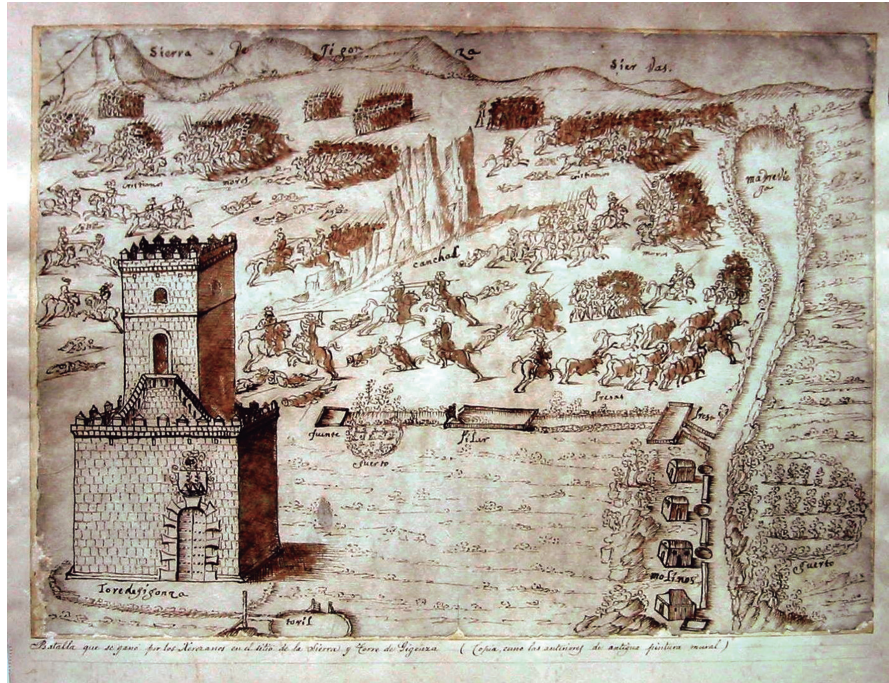 Sierra de Gigonza
Sierras.
cristianos
moros
cristianos
madre vieja
canchal
moros
presas
fuente
guerto
pilar
preso
molinos
guerto
Tore de gigonza
toril
Batalla que se gano por los Xerezanos en el sitio de la Sierra y Torre de Gigonza (Copia, como las anteriores de antigua pintura mural)